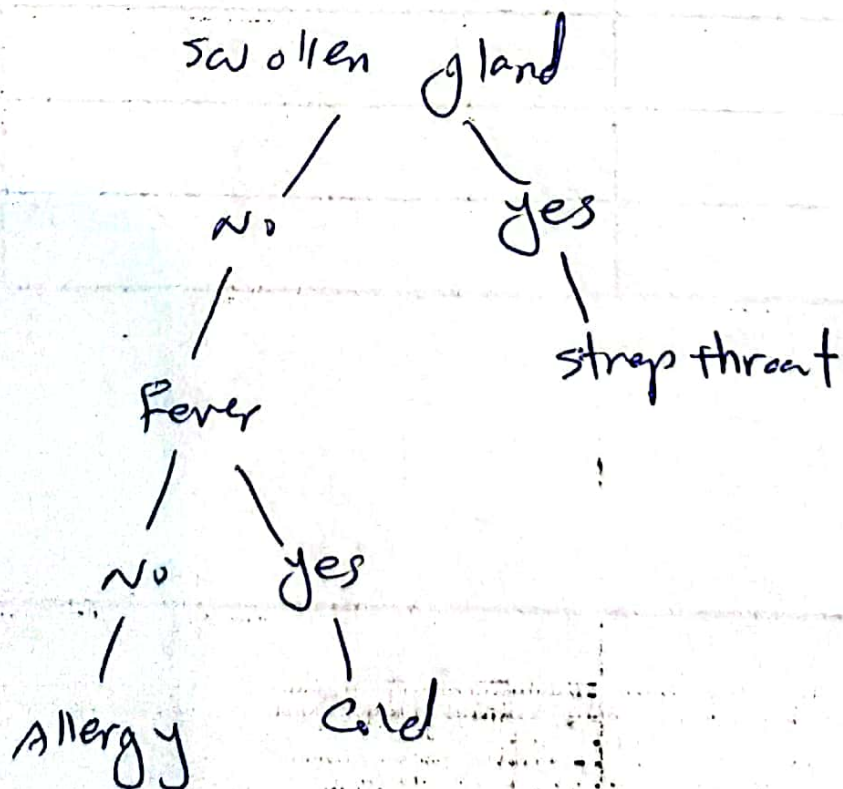 swollen gland
No yes
strep throat
Fever
No yes
Allergy Cold